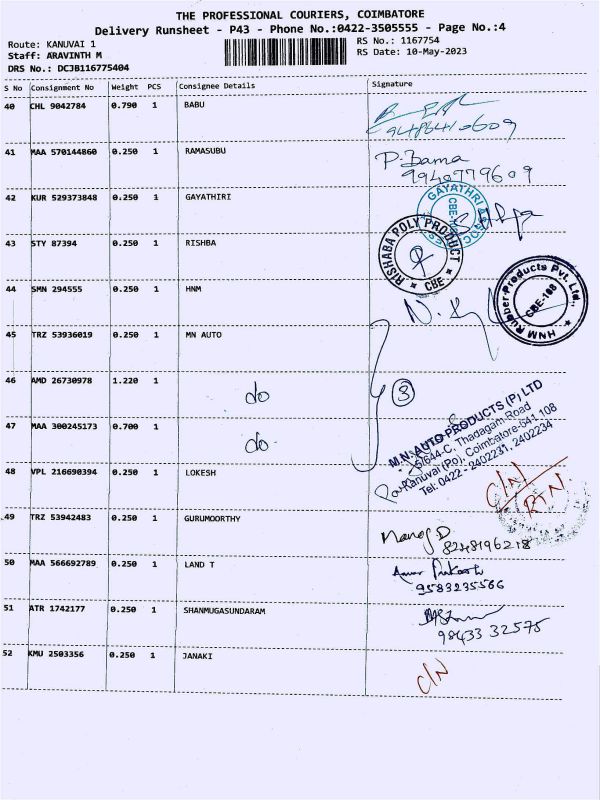 THE PROFESSIONAL COURIERS, COIMBATORE
Delivery Runsheet - P43 - Phone No.:0422-3505555 - Page No.:4
Route: KANUVAI 1
RS No.: 1167754
Staff: ARAVINTH M
RS Date: 10-May-2023
DRS No.: DCJB116775404
S No Consignment No Weight PCS Consignee Details Signature
40 CHL 9042784 0.790 1 BABU
9486410609
41 MAA 570144860 0.250 1 RAMASUBU P. Bama
9940779609
42 KUR 529373848 0.250 1 GAYATHIRI
GAYATHRI
43 STY 87394 0.250 1 RISHBA
RISHABA POLY PRODUCT
★ CBE ★
44 SMN 294555 0.250 1 HNM
HNM Rubber Products Pvt. Ltd.,
CBE-108
45 TRZ 53936019 0.250 1 MN AUTO
46 AMD 26730978 1.220 1 do 3
47 MAA 300245173 0.700 1 do
M.N. AUTO PRODUCTS (P) LTD
5/644-C, Thadagam Road
Kanuvai (Po), Coimbatore-641 108
Tel: 0422 - 2402231, 2402234
48 VPL 216690394 0.250 1 LOKESH C/N
RTN
49 TRZ 53942483 0.250 1 GURUMOORTHY Manoj D
8248196218
50 MAA 566692789 0.250 1 LAND T
9583235566
51 ATR 1742177 0.250 1 SHANMUGASUNDARAM
98433 32575
52 KMU 2503356 0.250 1 JANAKI C/N